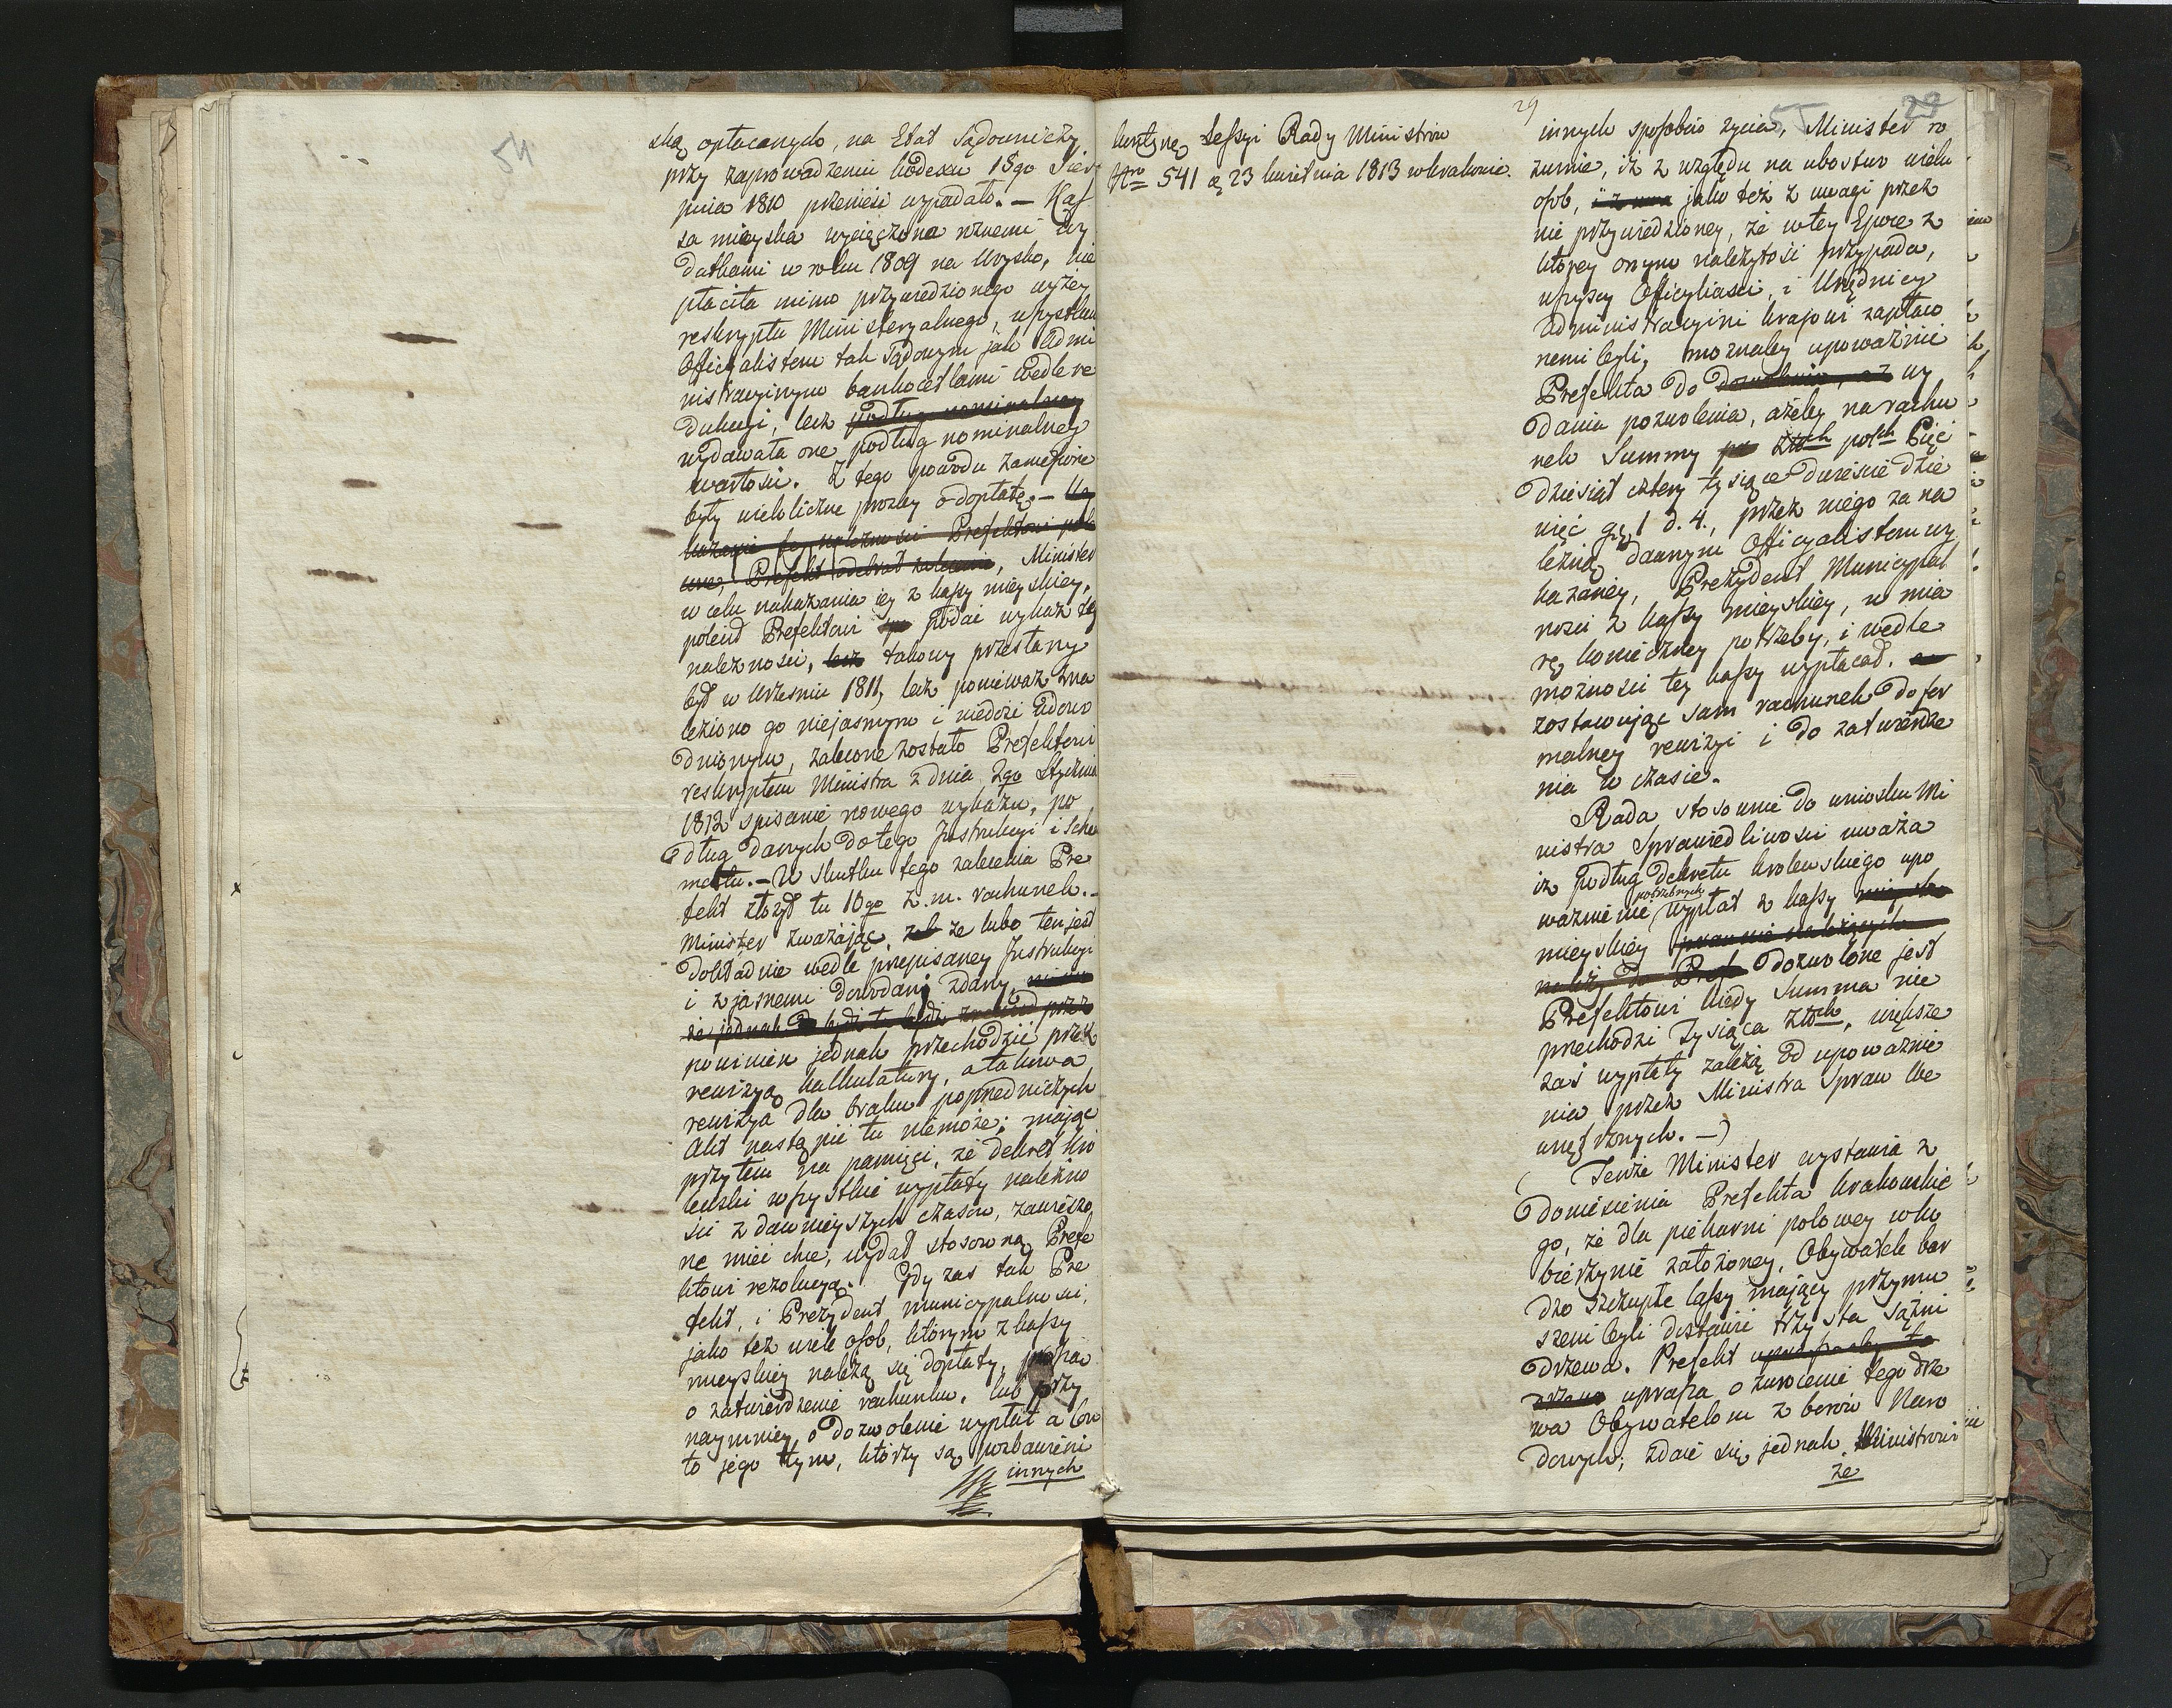 54
ską opłacanych, na Etat Sądowniczy
przy zaprowadzeniu kodexu 15go Sier
pnia 1810 przenieść wypadało. — Kas
sa mieyska wycięczona różnemi wy
datkami w roku 1809 na Woysko, nie
płaciła mimo przywiedzionego wyżey
reskryptu Ministeryalnego, wszystkim
Officyalistom tak Sądowym jak Admi
nistracyinym bankocetlami wedle re
dukcyi, lecz podług nominalney
wydawała one podług nominalney
wartości. Z tego powodu zaniesione
były wieloliczne prozby o dopłatę. — Wy
kazanie tey należności Prefektowi pole
cone, Prefekt odebrał zalecenie, Minister
w celu nakazania iey z kassy mieyskiey,
polecił Prefektowi podać wykaz tey
należności, lecz takowy przesłany
był w Wrześniu 1811, lecz ponieważ zna
leziono go niejasnym i niedość udowo
dnionym, zalecone zostało Prefektowi
reskryptem Ministra z dnia 2go Stycznia
1812 spisanie nowego wykazu, po
dług danych do tego Instrukcyi i Sche
matu. — W skutku tego zalecenia Pre
fekt złożył tu 10go z. m. rachunek. —
Minister zważając, że lubo ten jest
dokładnie wedle przepisaney Instrukcyi
i z jasnemi dowodami zdany,
że jednak
powinien jednak przechodzić przez
rewizyą kalkulatury, a takowa
rewizya dla braku poprzedniczych
Akt nastąpić tu niemoże; mając
przytem na pamięci, że dekret Kró
lewski wszystkie wypłaty należno
ści z dawnieyszych czasów, zawieszo
ne mieć chce, wydał stosowną Prefe
ktowi rezolucyą. Gdy zaś tak Pre
fekt, i Prezydent municypalności,
jako też wiele osob, którym z kassy
mieyskiey należą się dopłaty,
o zatwierdzenie rachunku, lub przy
naymniey o dozwolenie wypłat a Con
to jego tym, którzy są pozbawieni
innych
29
55
29
kontynę Sessyi Rady Ministrów
Nro 541 ą 23 kwietnia 1813 w Krakowie.
innych sposobów życia, Minister ro
zumie, iż z względu na ubostwo wielu
osob, jako też z uwagi przez
nie przywiedzioney, że w tey Epoce z
którey onym należytości przypada,
wszyscy Officyliaści, i Urzędnicy
administracyini krajowi zapłaco
nemi byli, możnaby upoważnić
Prefekta do wy
dania pozwolenia, ażeby na rachu
nek Summy złłch polch Pięć
dziesiąt cztery tysiące dwieście dzie
więć gr. 1 d. 4., przez niego za na
leżną dawnym Officyalistom wy
kazaney, Prezydent Municypal
ności z kassy mieyskiey, w mia
rę konieczney potrzeby, i wedle
możności tey kassy wypłacał,
zostawując sam rachunek do for
malney rewizyi i do zatwierdze
nia w czasie.
Rada stosownie do wniosku Mi
nistra Sprawiedliwości uważa
iż podług dekretu krolewskiego upo
ważnienie potrzebnych wypłat z kassy
mieyskiey
należy do Pref dozwolone jest
Prefektowi kiedy Summa nie
przechodzi Tysiąca złłch, większe
zaś wypłaty zależą od upoważnie
nia przez Ministra Spraw We
wnętrznych. —)
( Tenże Minister wystawia z
doniesienia Prefekta krakowskie
go, że dla piekarni polowey w Ko
bierzynie założoney, Obywatele bar
dzo szczupłe lassy mający przymu
szeni byli dostawić trzysta sążni
drzewa. Prefekt
uprasza o zwrócenie tego drze
wa Obywatelom z borów Naro
dowych; zdaie się jednak Ministrowi
że